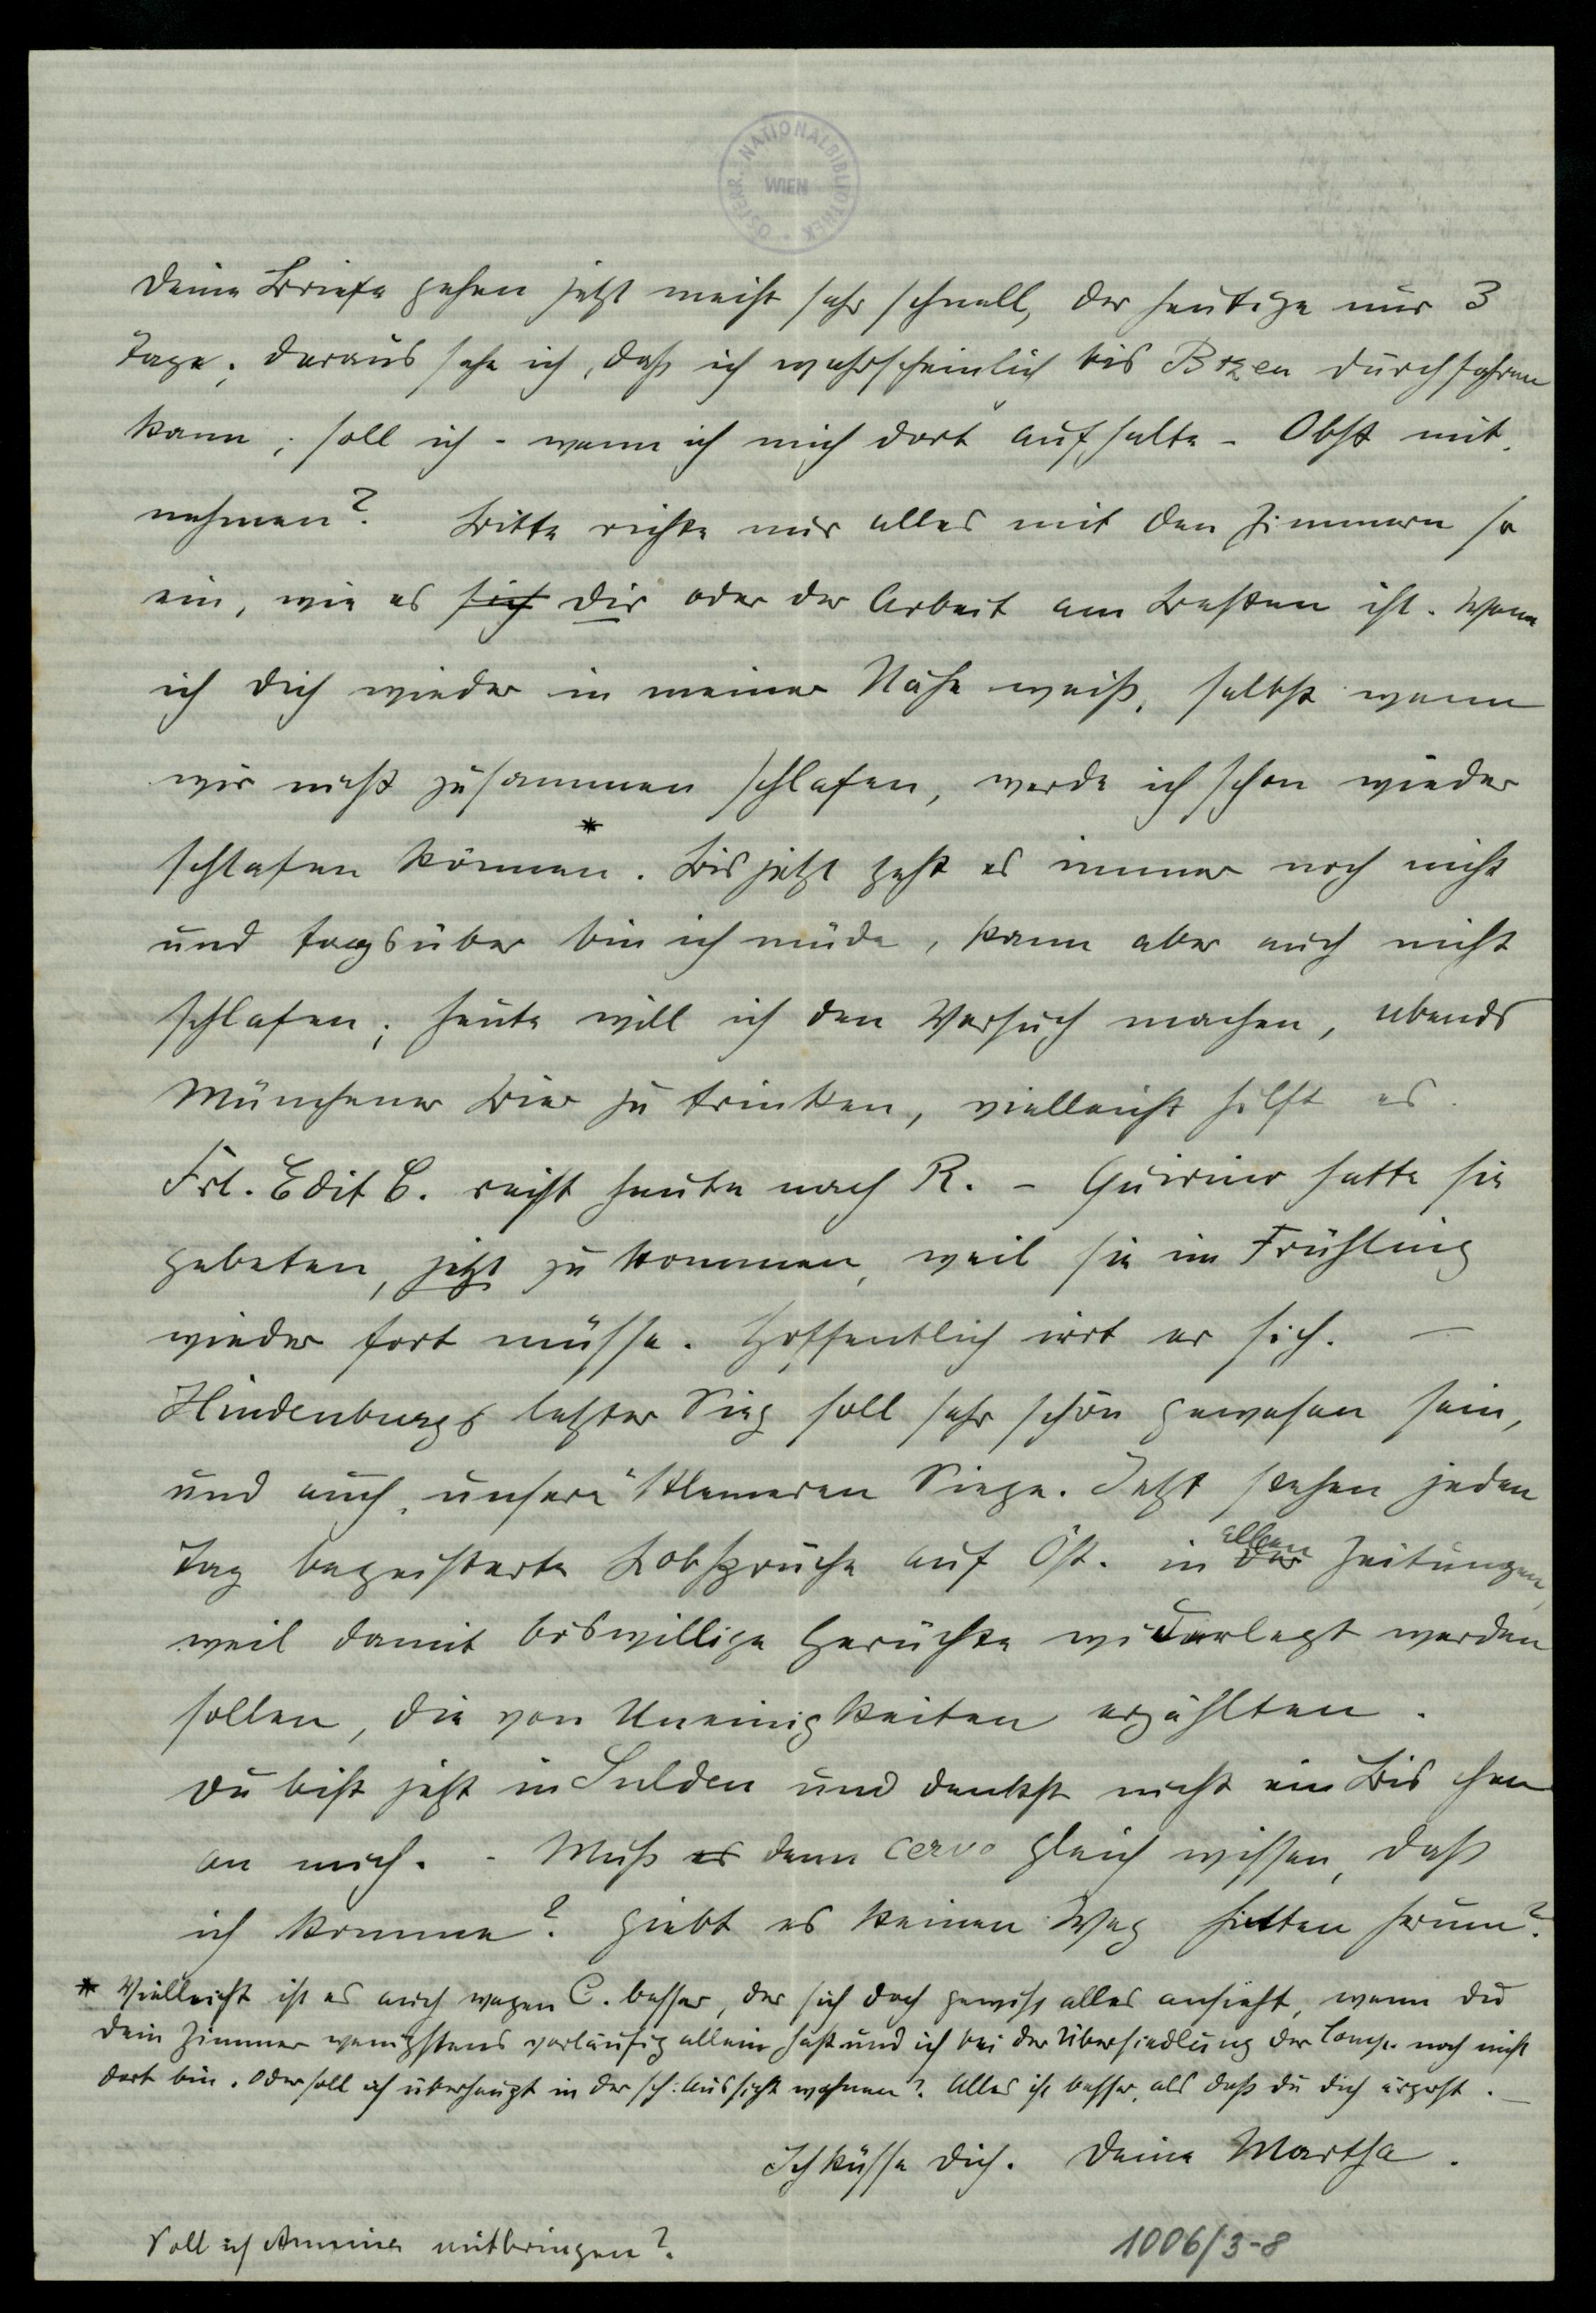 ÖSTERR. NATIONALBIBLIOTHEK
WIEN
Deine Briefe gehen jetzt meist sehr schnell, der heutige nur 3
Tage; daraus sehe ich, daß ich wahrscheinlich bis Bozen durchfahren
kann; soll ich - wenn ich mich dort aufhalte - Obst mit-
nehmen? Bitte richte nur alles mit den Zimmern so
ein, wie es sich Dir oder der Arbeit am Besten ist. Wenn
ich Dich wieder in meiner Nähe weiß, selbst wenn
wir nicht zusammen schlafen, werde ich schon wieder
schlafen können.* Bis jetzt geht es immer noch nicht
und tagsüber bin ich müde, kann aber auch nicht
schlafen; heute will ich den Versuch machen, abends
Münchener Bier zu trinken, vielleicht hilft es.
Frl. Edit C. reist heute nach R. - Guirino hatte sie
gebeten, jetzt zu kommen, weil sie im Frühling
wieder fort müsse. Hoffentlich irrt er sich. —
Hindenburgs letzter Sieg soll sehr schön gewesen sein,
und auch unsere kleineren Siege. Jetzt stehen jeden
Tag begeisterte Lobsprüche auf Öst. in der allen Zeitungen,
weil damit böswillige Gerüchte widerlegt werden
sollen, die von Uneinigkeiten erzählten.
Du bist jetzt in Sulden und denkst nicht ein Bischen
an mich. - Muß es denn Cervo gleich wissen, daß
ich komme? Giebt es keinen Weg hinten herum?
* Vielleicht ist es auch wegen C. besser, der sich doch gewiß alles ansieht, wenn du
dein Zimmer wenigstens vorläufig allein hast und ich bei der Übersiedlung der Comp. noch nicht
dort bin. Oder soll ich überhaupt in der sch: Aussicht wohnen? Alles ist besser, als daß du dich ärgerst. —
Ich küsse Dich. Deine Martha.
Soll ich Annina mitbringen?
1006/3-8